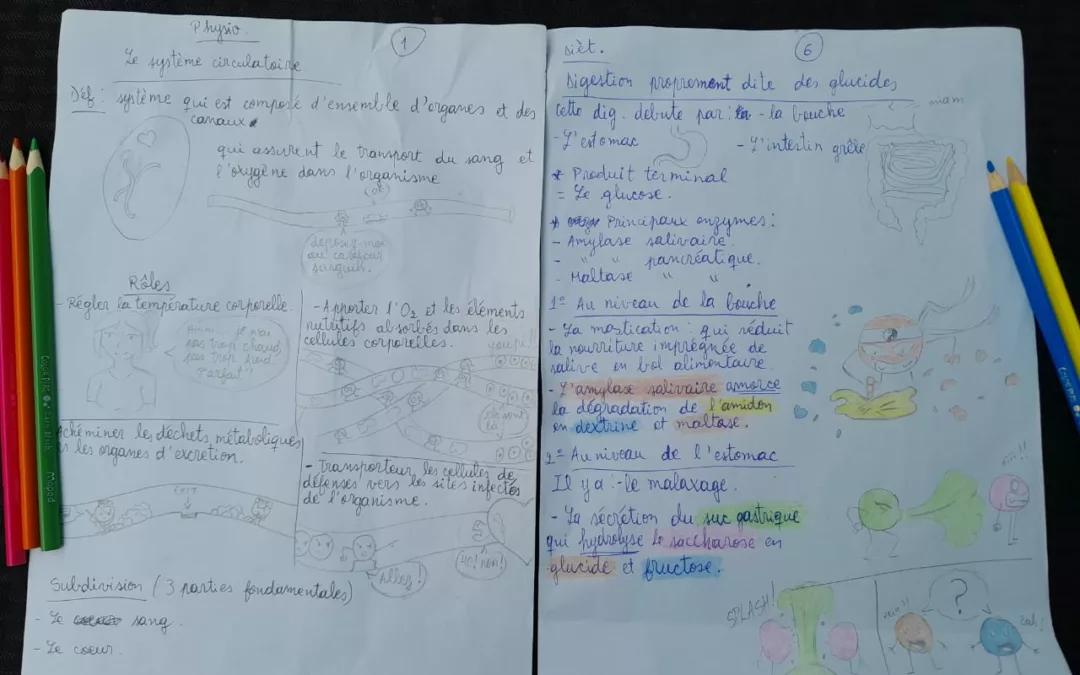 Physio.
1
Le système circulatoire
Déf : système qui est composé d'ensemble d'organes et des
canaux
qui assurent le transport du sang et
l'oxygène dans l'organisme
Déposez-moi
au caisseur
sanguin.
Rôles
- Régler la température corporelle.
je n'ai
pas trop chaud,
pas trop froid
Parfait"
- Apporter l'O2 et les éléments
nutritifs absorbés dans les
cellules corporelles.
youpi!!
là
Acheminer les déchets métaboliques
les organes d'excrétion.
EXIT
- Transporteur les cellules de
défenses vers les sites infectés
de l'organisme.
Allez!
non!
Subdivision (3 parties fondamentales)
- Le sang.
- Le coeur.
Dièt.
6
Digestion proprement dite des glucides
Cette dig. débute par : - la bouche
- L'estomac
- L'intestin grêle
miam
* Produit terminal
= Le glucose.
* Principaux enzymes :
- Amylase salivaire.
- " " pancréatique.
- Maltase " "
1° Au niveau de la bouche
- La mastication : qui réduit
la nourriture imprégnée de
salive en bol alimentaire.
- L'amylase salivaire amorce
la dégradation de l'amidon
en dextrine et maltase.
2° Au niveau de l'estomac
Il y a : - le malaxage.
- La sécrétion du suc gastrique
qui hydrolyse le saccharose en
glucide et fructose.
SPLASH!
?